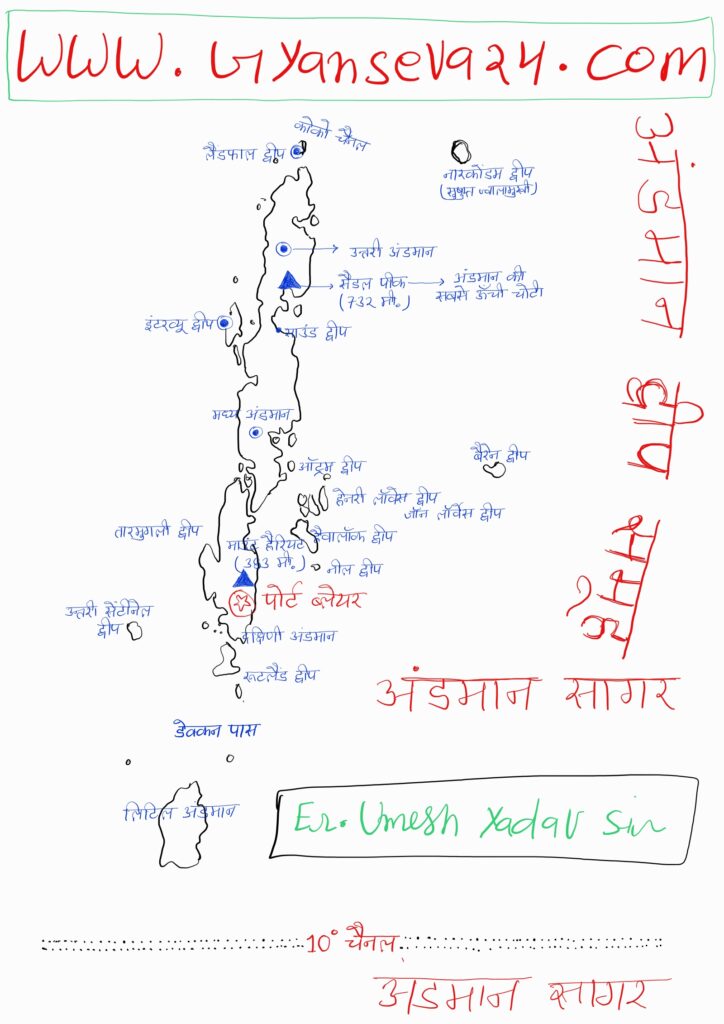 www.Gyanseva24.com
कोको चैनल
लैंडफाल द्वीप
नारकोंडम द्वीप
(सुषुप्त ज्वालामुखी)
उत्तरी अंडमान
सैडल पीक
(732 मी.)
अंडमान की
सबसे ऊँची चोटी
इंटरव्यू द्वीप
साउंड द्वीप
मध्य अंडमान
बैरेन द्वीप
ऑट्रम द्वीप
हेनरी लॉरेंस द्वीप
जॉन लॉरेंस द्वीप
तारमुगली द्वीप
हैवालॉक द्वीप
माउंट हैरियट
(383 मी.)
नील द्वीप
पोर्ट ब्लेयर
उत्तरी सेंटीनेल
द्वीप
दक्षिणी अंडमान
रूटलैंड द्वीप
अंडमान द्वीप समूह
अंडमान सागर
डेक्कन पास
लिटिल अंडमान
Er. Umesh Yadav Sir
10° चैनल
अंडमान सागर